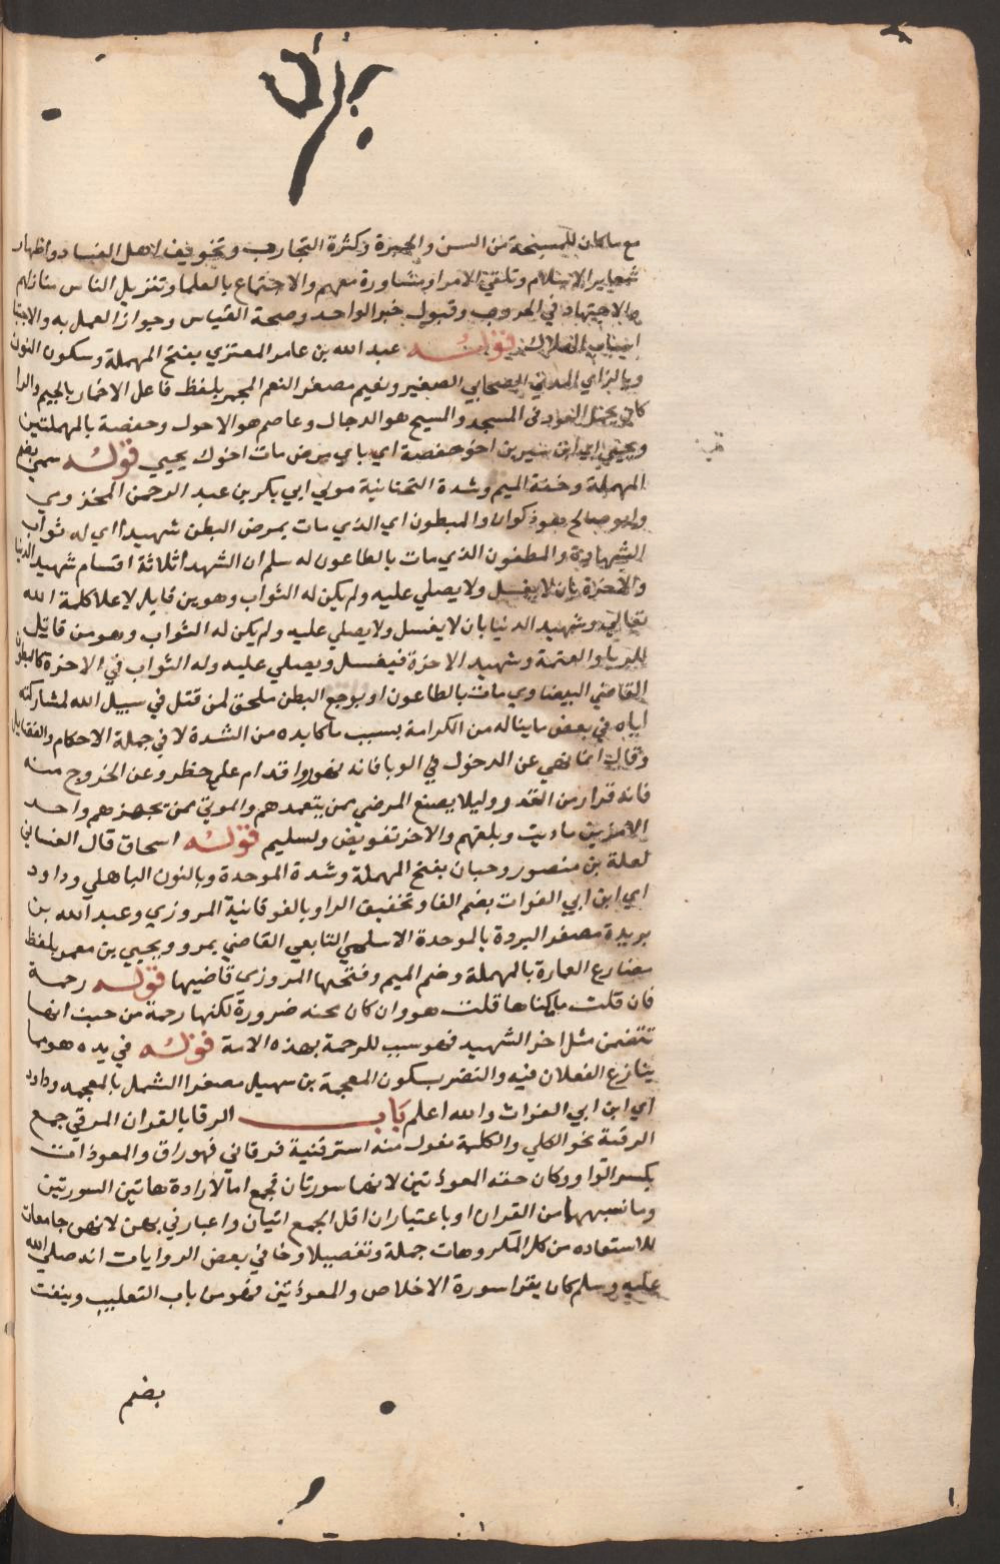 مع ماكان للمشيخة من السن والخبرة وكثرة التجارب وتخويف لاهل الفساد واظهار
شعاير الاسلام وتلقي الامرا ومشاورة معهم والاجتماع بالعلما وتنزيل الناس منازلهم
والاجتهاد في الحروب وقبول خبر الواحد وصحة القياس وجواز العمل به
قوله عبد الله بن عامر العنزي بفتح المهملة وسكون النون
وبالزاي المدني الصحابي الصغير ونعيم مصغر النعم المجمر بلفظ فاعل الاجمار بالجيم والرا
كان يجمل العود في المسجد والمسيح هو الدجال وعاصم هو الاحول وحفصة بالمهملتين
ويحيي اي ابن سيرين اخو حفصة اي باي مرض مات اخوك يحيي قوله سمي بضم
المهملة وخفة الميم وشدة التحتانية مولي ابي بكر بن عبد الرحمن المخزومي
وابو صالح هو ذكوان والمبطون اي الذي مات بمرض البطن شهيد اي له ثواب
الشهادة والمطعون الذي مات بالطاعون له سلم ان الشهدا ثلاثة اقسام شهيد الدنيا
والاخرة بان لا يغسل ولا يصلي عليه ولم يكن له الثواب وهو من قاتل لاعلا كلمة الله
تعالي وشهيد الدنيا بان لا يغسل ولا يصلي عليه ولم يكن له الثواب وهو من قاتل
للريا والغنيمة وشهيد الاخرة فيغسل ويصلي عليه وله الثواب في الاخرة كالمبطون
القاضي البيضاوي مات بالطاعون او بوجع البطن ملحق لمن قتل في سبيل الله لمشاركته
اياه في بعض ما يناله من الكرامة بسبب ما كابده من الشدة لا في جملة الاحكام والفضايل
وقال انما نهي عن الدخول في الوبا فانه تهور واقدام علي خطر وعن الخروج منه
فانه فرار من القدر وليلا يصنع المرضي بمن يتعهدهم والموتي بمن يجهزهم واحد
الامرين تاديب وتعليم والاخر تفويض وتسليم قوله اسحاق قال الغساني
لعله بن منصور وحبان بفتح المهملة وشدة الموحدة وبالنون الباهلي وداود
اي ابن ابي الفرات بضم الفا وتخفيف الرا وبالفوقانية المروزي وعبد الله بن
بريدة مصغر البردة بالموحدة الاسلمي التابعي القاضي بمرو ويحيي بن معمر بلفظ
مضارع العمارة بالمهملة وضم الميم وفتحها المروزي قاضيها قوله رحمة
فان قلت ماكناها قلت هو وان كان محنة ضرورة لكنها رحمة من حيث انها
تتضمن مثل اجر الشهيد فهو سبب للرحمة بهذه الامة قوله في بلده هو مما
يتنازع الفعلان فيه والنضر بسكون المعجمة بن سهيل مصغر الشمل بالمعجمه وداود
اي ابن ابي الفرات والله اعلم باب الرقا بالقران المرقي جمع
الرقية نحو الكلي والكلية تقول منه استرقيته فرقاني فهو راق والمعوذات
بكسر الواو وكان حقه المعوذتين لانهما سورتان فجمع اما لارادة هاتين السورتين
وما يشبههما من القران او باعتبار ان اقل الجمع اثنان واعبارني بهن لانهن جامعات
للاستعاده من كل المكروهات جملة وتفصيلا وجا في بعض الروايات انه صلي الله
عليه وسلم كان يقرا سورة الاخلاص والمعوذتين فهو من باب التغليب وينفث
بضم